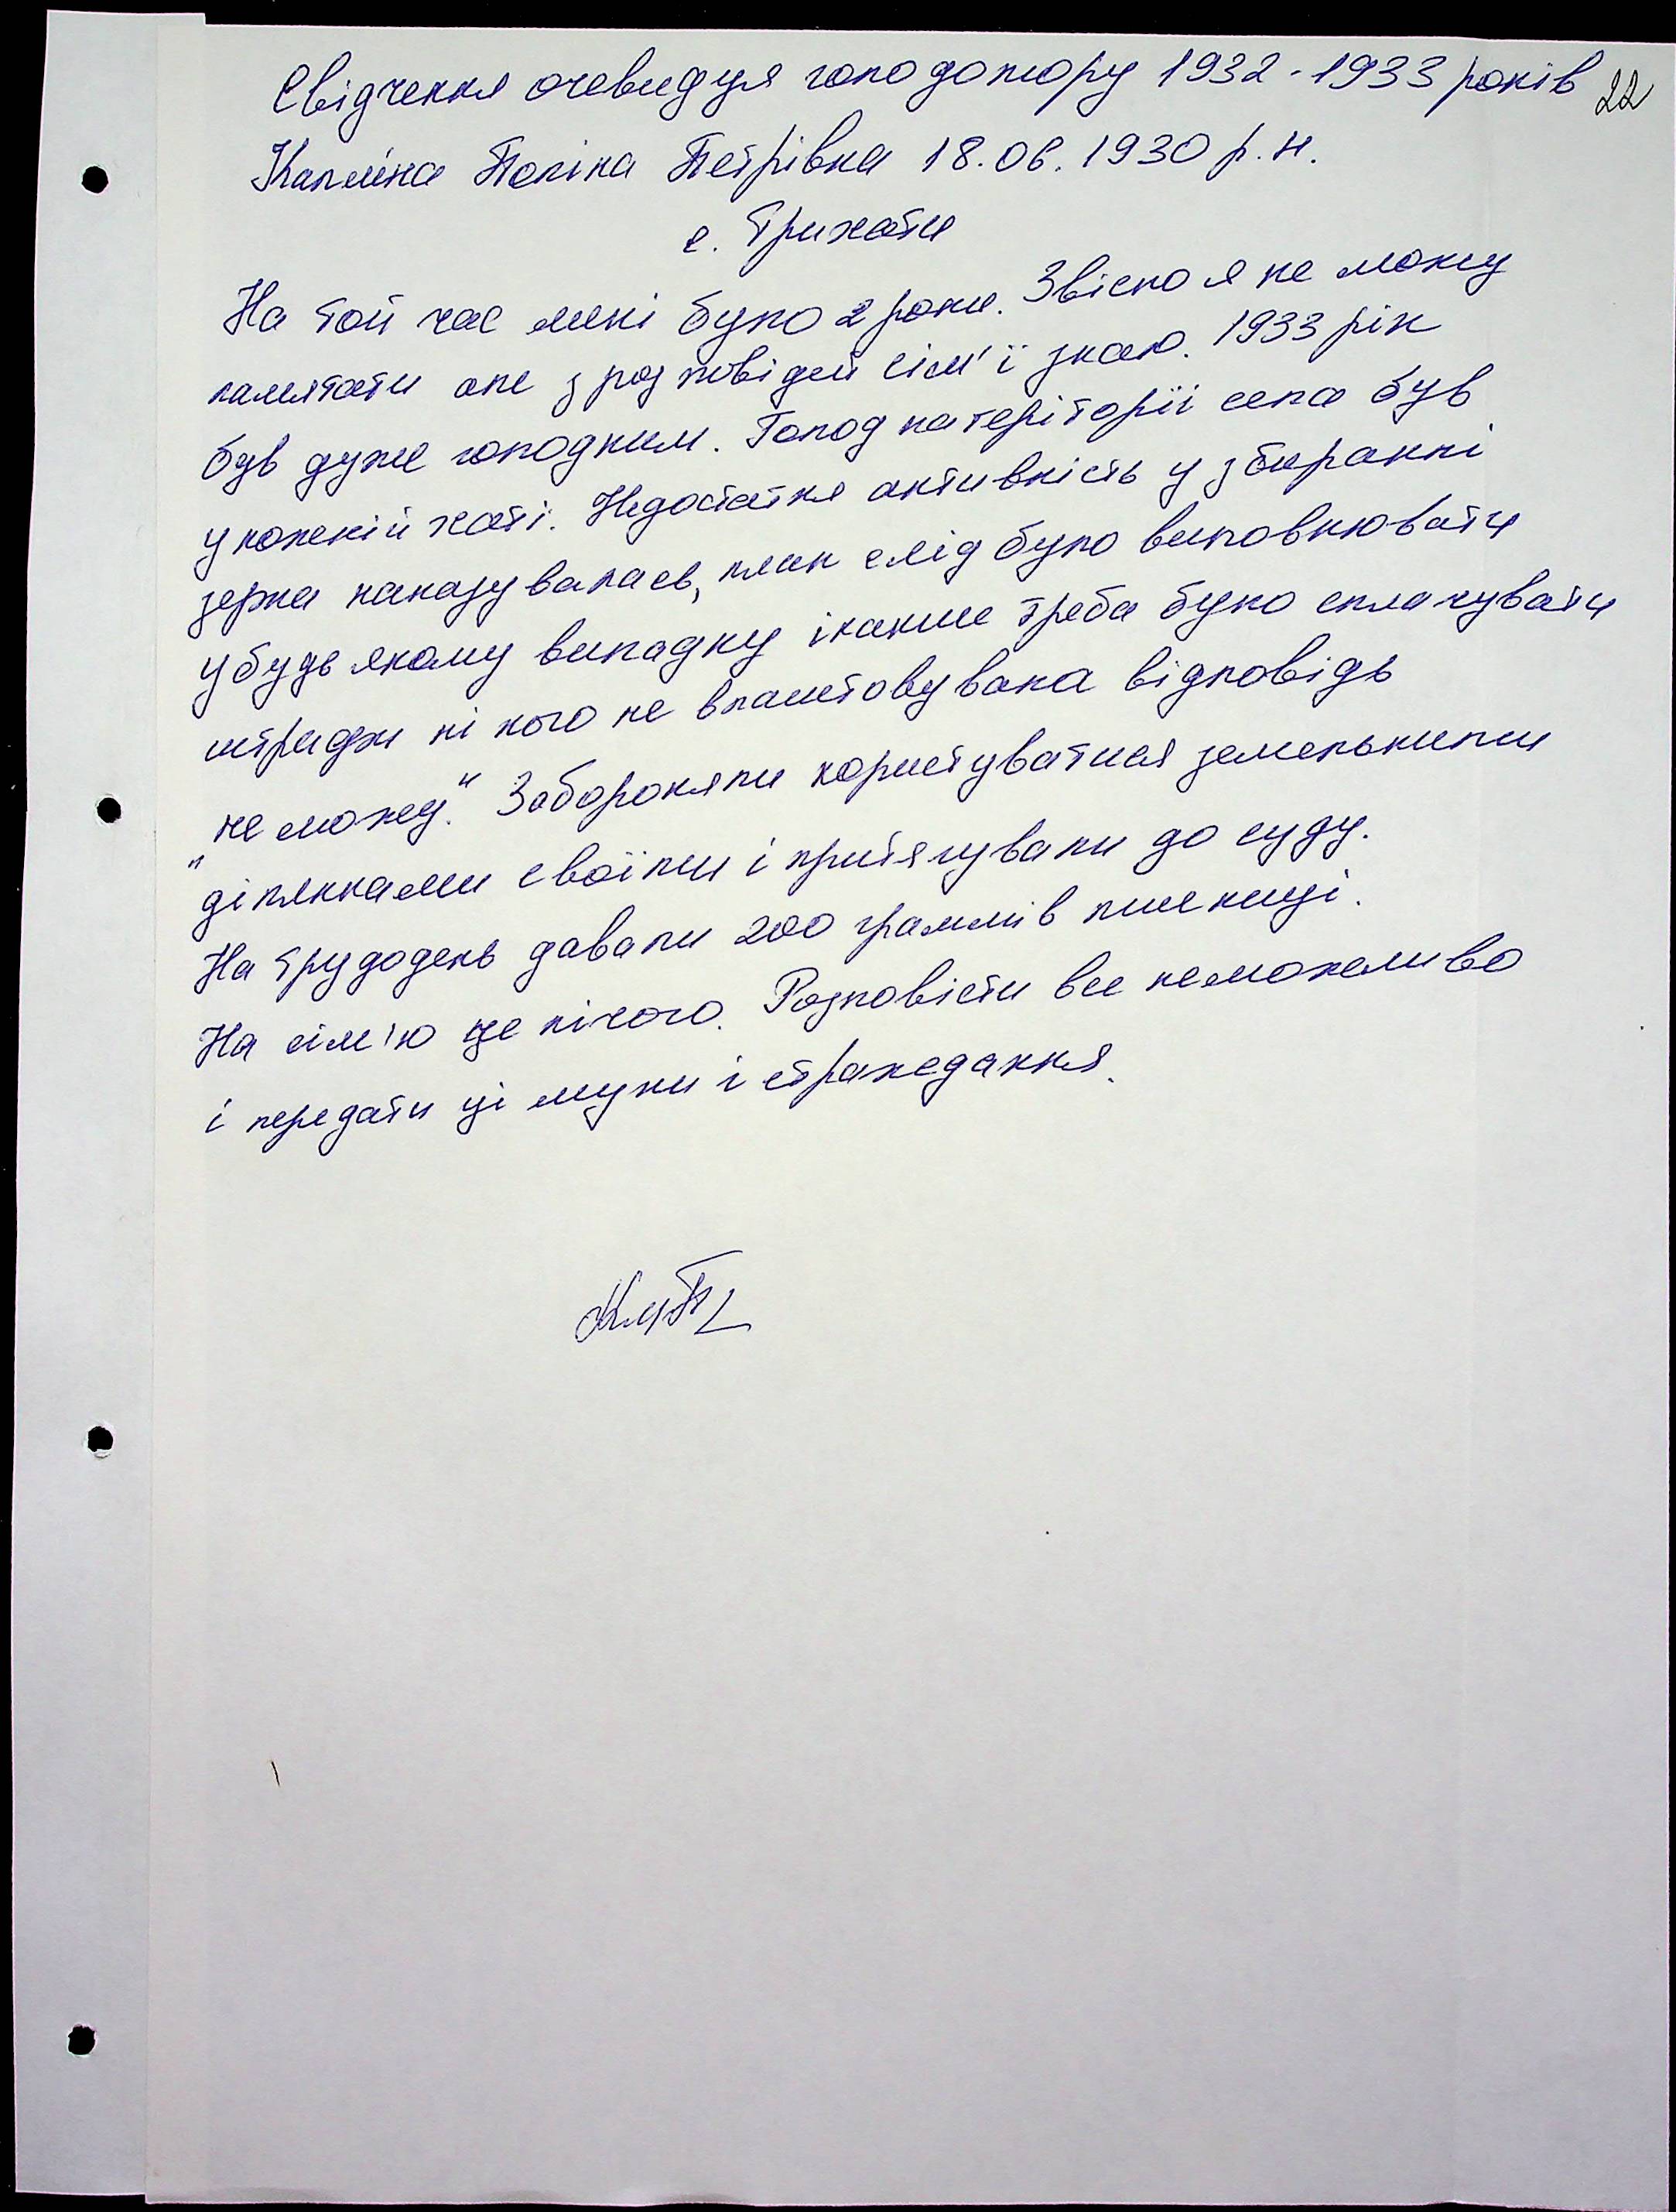 Свідчення очевидця голодомору 1932-1933 років 22
Поліна Петрівна 18.06.1930 р.н.
с. Трихати
На той час мені було 2 роки. Звісно я не можу
памятати але з розповідей сім'ї знаю. 1933 рік
був дуже голодним. Голод на території села був
у кожній хаті. Недостатня активність у збиранні
зерна наказувалась, план слід було виповнювати
у будь якому випадку інакше треба було сплачувати
штрафи ні кого не влаштовувала відповідь
"не можу". Забороняли користуватися земельними
ділянками своїми і притягували до суду.
На трудодень давали 200 граммів пшениці.
На сім'ю це нічого. Розповісти все неможливо
і передати ці муки і страждання.